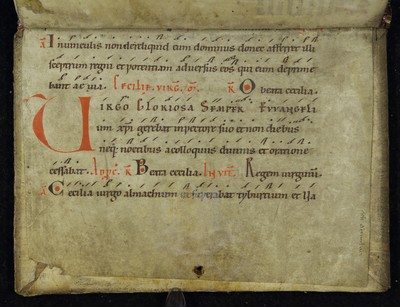 a In uinculis non dereliquid eum dominus donec afferret illi
sceptrum regni et potentiam aduersus eos qui eum deprime
bant ac uia. CECILIE. VIRG. R O beata cecilia.
VIRGO GLORIOSA SEMPER EVVANGELI
um xpi gerebat in pectore suo et non diebus
neq; noctibus a colloquiis diuinis et oratione
cessabat. R Beata cecilia. INVIT. Regem uirginū.
a Cecilia uirgo almachium superabat tyburtium et